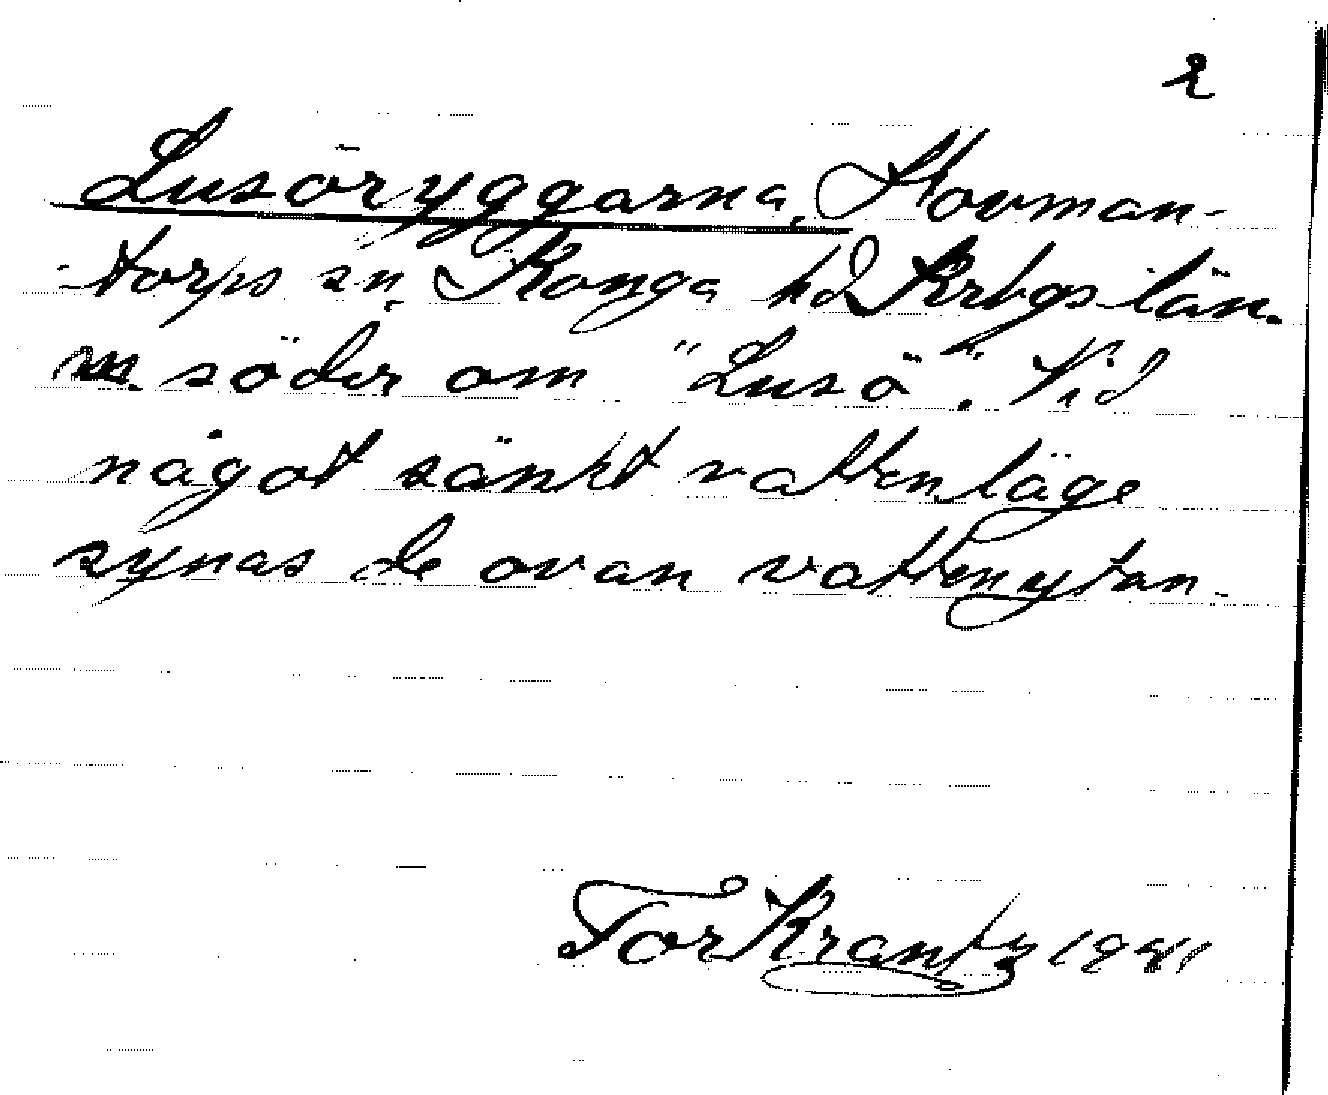 2
Lusöryggarna, Hovman-
-torps sn, Konga hd Krbgs län.
söder om "Lusö". Vid
något sänkt vattenläge
synas de ovan vattenytan.
Tor Krantz 1941